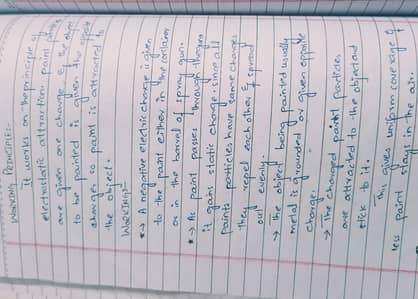 WORKING PRINCIPLE:-
It works on the principle of
electrostatic attraction paint
are given one charge & the object
to be painted is given the opposite
charge, so paint is attracted to
the object.
WORKING:-
→ A negative electric charge is given
to the paint either in the container
or in the barrel of spray gun.
→ As paint passes through the gun
it gains static charge since all
paints particles have same charges
they repel each other & spread
out evenly.
→ The object being painted usually
metal is grounded or given opposite
charge.
→ The charged paint particles
are attracted to the object and
stick to it.
This gives uniform coverage &
less paint stays in the air